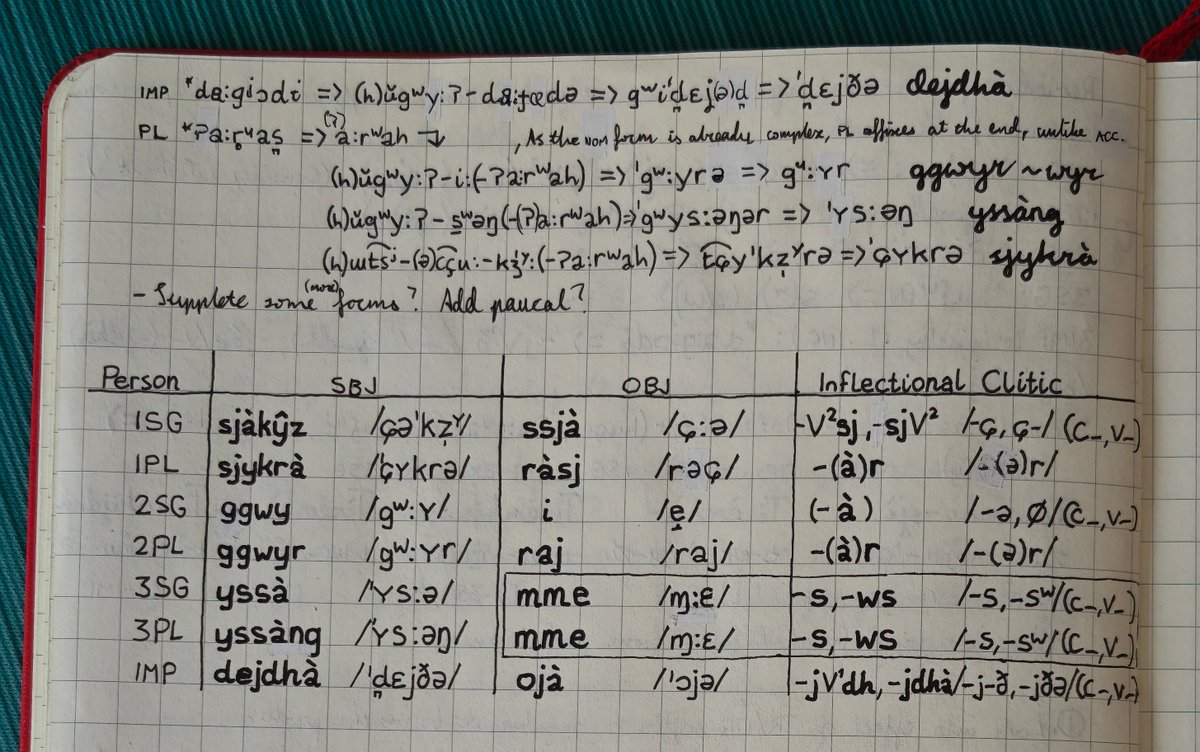 IMP *da:giɔdi => (h)ŭgʷy:ʔ-da:ɟœdə => gʷi'd̪ɛj(ə)d̪ => 'd̪ɛjðə dejdhà
PL *ʔa:rʷas̪ => (?)a:rʷah ↴ , As the NOM form is already complex, PL affixes at the end, unlike ACC.
(h)ŭgʷy:ʔ-i:(-ʔa:rʷah) => 'gʷ:yrə => gʷ:ʏr ggwyr ~wyr
(h)ŭgʷy:ʔ-s̱ʷəŋ(-(ʔ)a:rʷah) => 'gʷys:əŋər => 'ʏs:əŋ yssàng
=> 'çʏkrə sjykrà
- Supplete some (more) forms? Add paucal?
Person SBJ OBJ Inflectional Clitic
1SG sjàkŷz /çə'kẓˠ/ ssjà /ç:ə/ -V²sj, -sjV² /-ç, ç-/ (C_, V_)
1PL sjykrà /'çʏkrə/ ràsj /rəç/ -(à)r /-(ə)r/
2SG ggwy /gʷ:ʏ/ i /e̞/ (-à) /-ə, Ø/(C_, V_)
2PL ggwyr /gʷ:ʏr/ raj /raj/ -(à)r /-(ə)r/
3SG yssà /'ʏs:ə/ mme /ɱ:ɛ/ -s, -ws /-s, -sʷ/(C_, V_)
3PL yssàng /'ʏs:əŋ/ mme /ɱ:ɛ/ -s, -ws /-s, -sʷ/(C_, V_)
IMP dejdhà /'d̪ɛjðə/ ojà /'ɔjə/ -jV'dh, -jdhà /-j-ð, -jðə/(C_, V_)